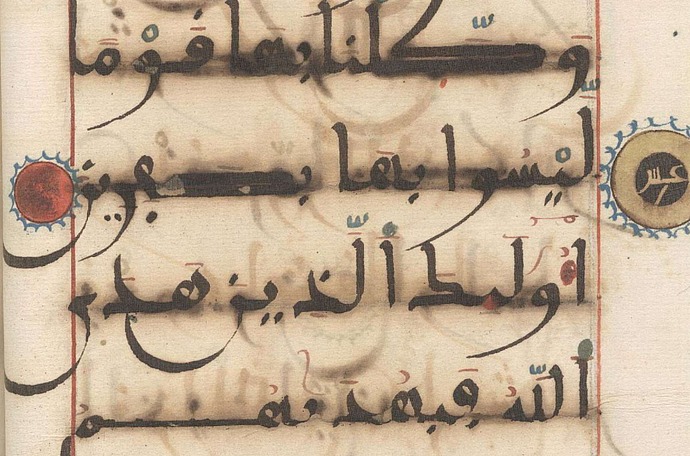 وكلنا بها قوما
ليسوا بها بكفرين
عشر
اولئك الذين هدى
الله فبهديهم